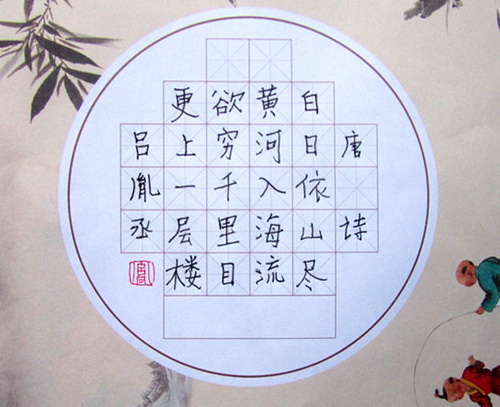 唐诗
白日依山尽
黄河入海流
欲穷千里目
更上一层楼
吕胤丞